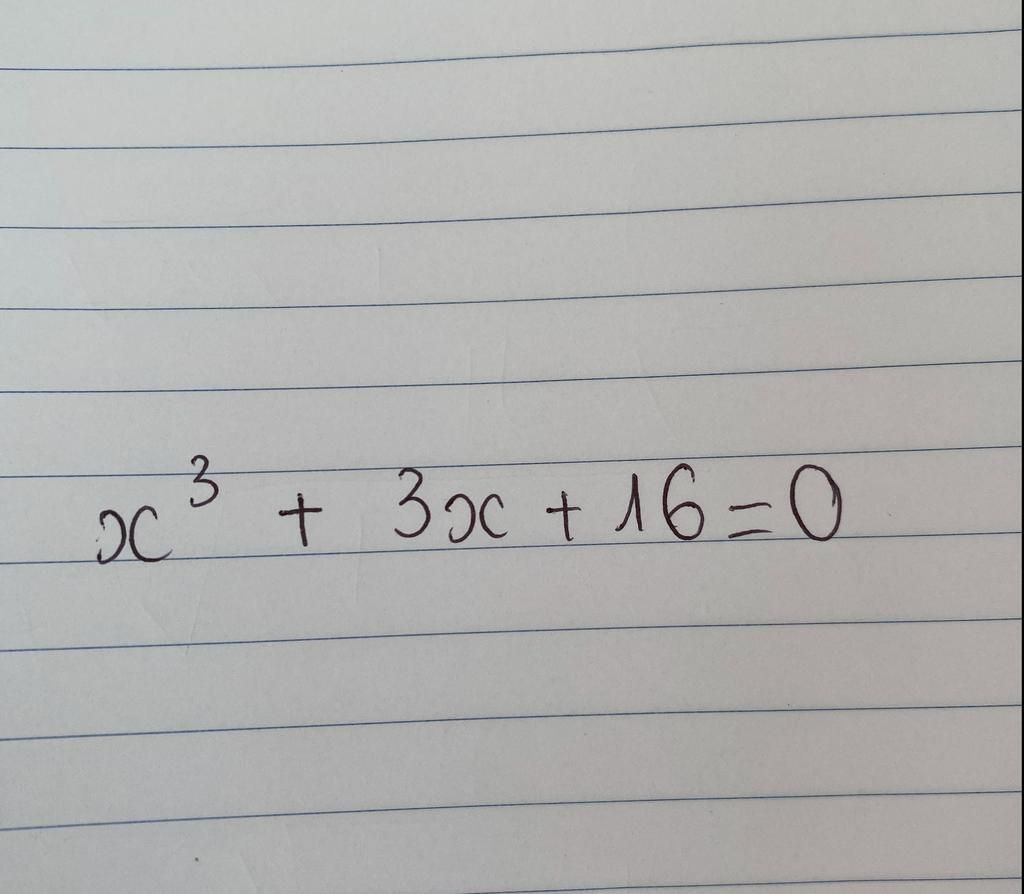 x³ + 3x + 16 = 0